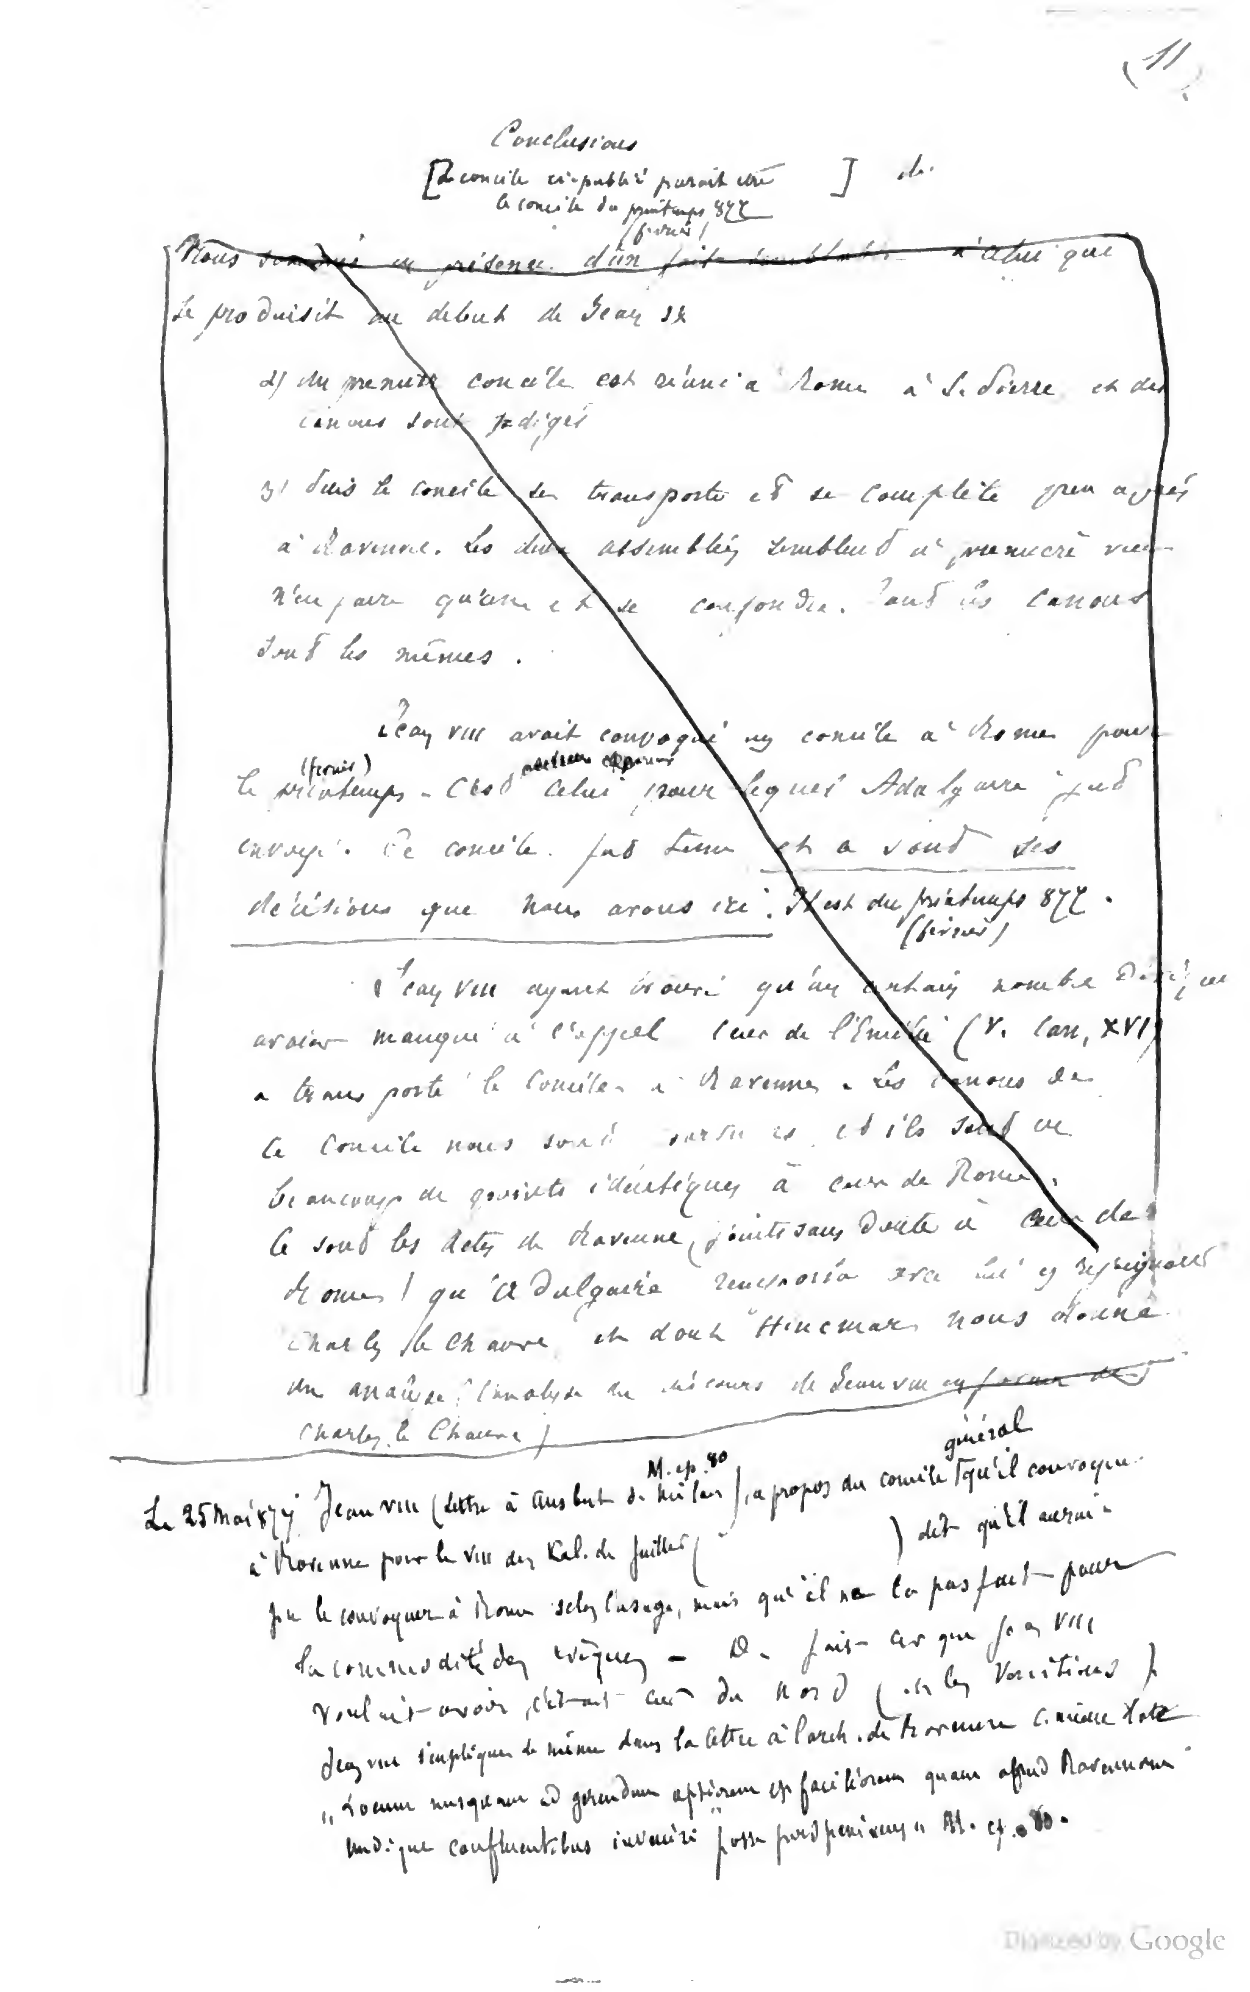 (11)
Conclusions
[Le concile ci-publié parait être ] de
le concile du printemps 877
(février)
Nous sommes en présence d'un fait semblable à celui que
se produisit au debut de Jean IX
2) Un premier concile est réuni à Rome à S. Pierre et des
canons sont rédigés
3) Puis le concile se transporte et se complète peu après
à Ravenne. Les deux assemblées semblent à première vue
n'en faire qu'une et se confondre. Tant les canons
sont les mêmes.
Jean VIII avait convoqué un concile à Rome pour
(février)
le printemps - C'est celui pour lequel Adalgaire fut
envoyé. Ce concile fut tenu et a rendu les
décisions que nous avons ici. Il est du printemps 877.
(février)
Jean VIII ayant trouvé qu'un certain nombre d'évêques
avaient manqué à l'appel ceux de l'Emilie (V. Can. XVI)
a transporté le concile à Ravenne. Les canons de
ce concile nous sont et ils sont en
beaucoup de points identiques à ceux de Rome.
Ce sont les actes de Ravenne, joints sans doute à ceux de
Rome ! qu'Adalgaire remporta avec lui en rejoignant
Charles le Chauve et dont Hincmar nous donne
une analyse (l'analyse du discours de Jean VIII en faveur de
Charles le Chauve)
M. ep. 80
général
Le 25 Mai 877 Jean VIII (lettre à Ansbert de Milan), à propos du concile qu'il convoque
à Ravenne pour le VIII des Kal. de Juillet ( ) dit qu'il aurait
pu le convoquer à Rome selon l'usage, mais qu'il ne l'a pas fait pour
la commodité des évêques - De fait ce que Jean VIII
voulait avoir, c'était ceux du nord ( et les Vénitiens )
Jean VIII s'explique de même dans la lettre à l'arch. de Ravenne même date
" Locum nusquam ad gerendum aptiorem et faciliorem quam apud Ravennam
undique confluentibus inveniri posse perspeximus " M. ep. 80.
Digitized by Google